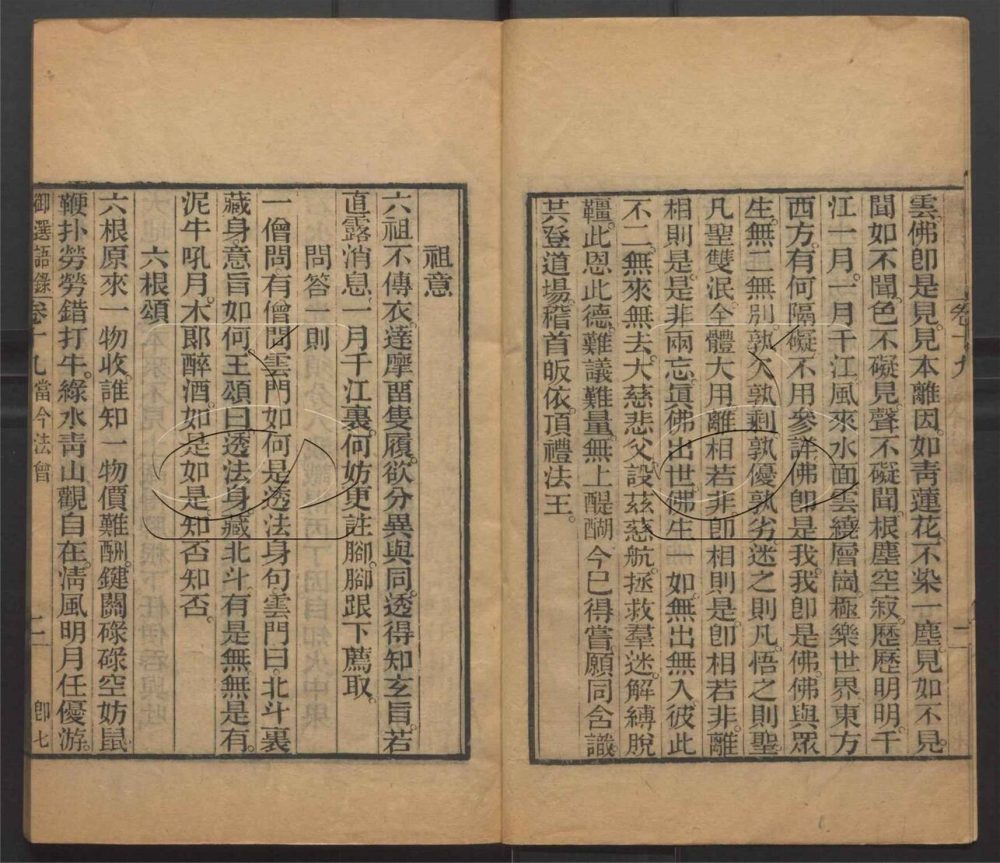 雲佛卽是見見本離因如靑蓮花不染一塵見如不見
聞如不聞色不礙見聲不礙聞根塵空寂歷歷明明千
江一月一月千江風來水面雲繞層崗極樂世界東方
西方有何隔礙不用參詳佛卽是我我卽是佛佛與眾
生無二無別孰欠孰剩孰優孰劣迷之則凡悟之則聖
凡聖雙泯全體大用離相若非卽相則是卽相若非離
相則是是非兩忘眞佛出世佛生一如無出無入彼此
不二無來無去大慈悲父設茲慈航拯救羣迷解縛脫
韁此恩此德難議難量無上醍醐今巳得嘗願同含識
共登道場稽首皈依頂禮法王
卷十九
二
祖意
六祖不傳衣達摩畱隻履欲分異與同透得知玄旨若
直露消息一月千江裏何妨更註腳腳跟下薦取
問答一則
一僧問有僧問雲門如何是透法身句雲門曰北斗裏
藏身意旨如何王頌曰透法身藏北斗有是無無是有
泥牛吼月木郞醉酒如是如是知否知否
六根頌
六根原來一物收誰知一物價難酬鍵關碌碌空妨鼠
鞭扑勞勞錯打牛綠水靑山觀自在淸風明月任優游
御選語錄卷十九當今法會
二
卽七